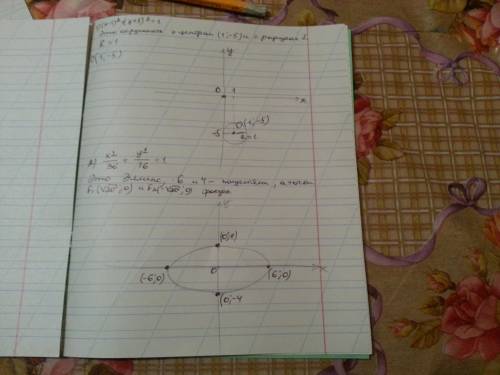 (x-1)²+(y+5)²=1
Это окружность с центром (1;-5) и с радиусом 1.
R=1
O(1;-5)
y
0 1
x
-5
O(1;-5)
R=1
x²/36 + y²/16 = 1
Это эллипс, 6 и 4 - полуоси, а точки
F₁(√20;0) и F₂(-√20;0) фокусы
y
(0;4)
(-6;0) 0 (6;0) x
(0;-4